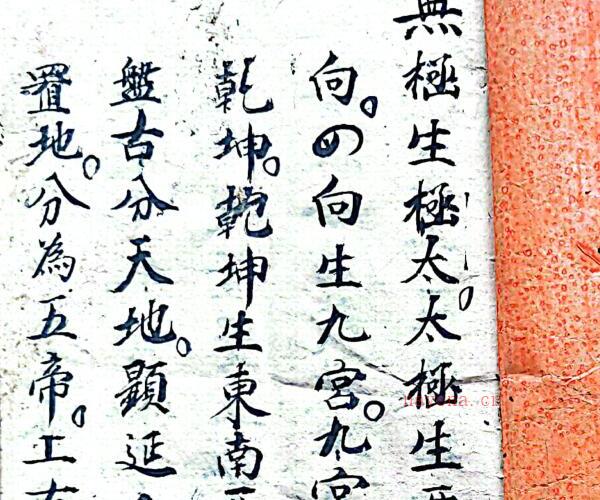 無極生極太。太極生
向。四向生九宮。九宮
乾坤。乾坤生東南
盤古分天地。顯延
置地。分為五帝。工